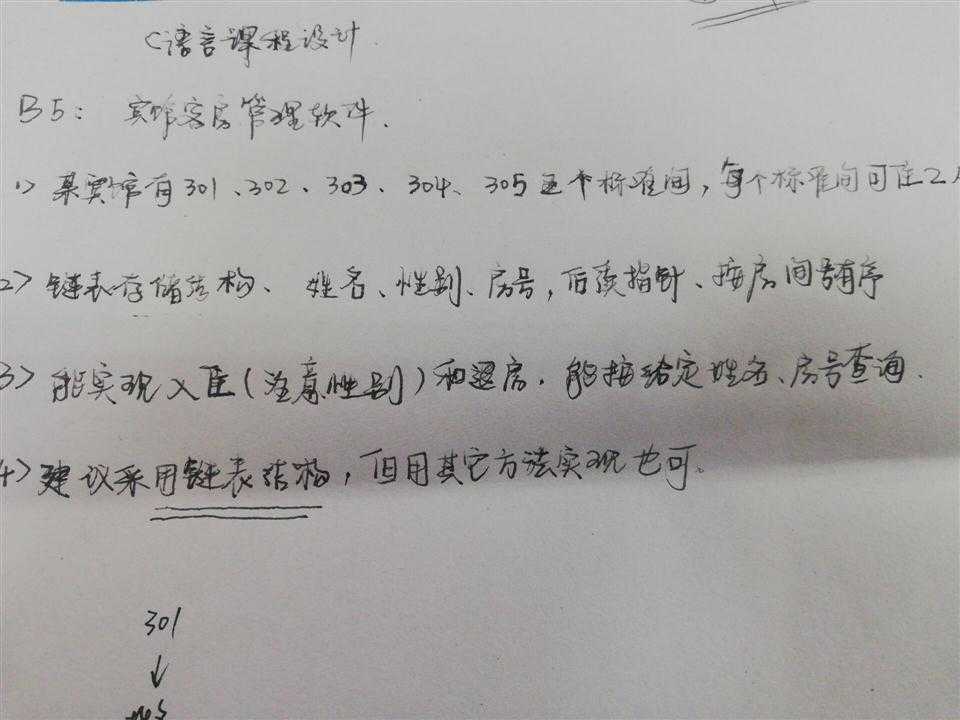 C语言课程设计.
B5: 宾馆客房管理软件.
1> 某宾馆有301、302、303、304、305五个标准间,每个标准间可住2人
2> 链表存储结构、姓名、性别、房号,后续指针、按房间号有序
3> 能实现入住(注意性别)和退房.能按给定姓名、房号查询.
4> 建议采用链表结构,但用其它方法实现也可。
301
↓